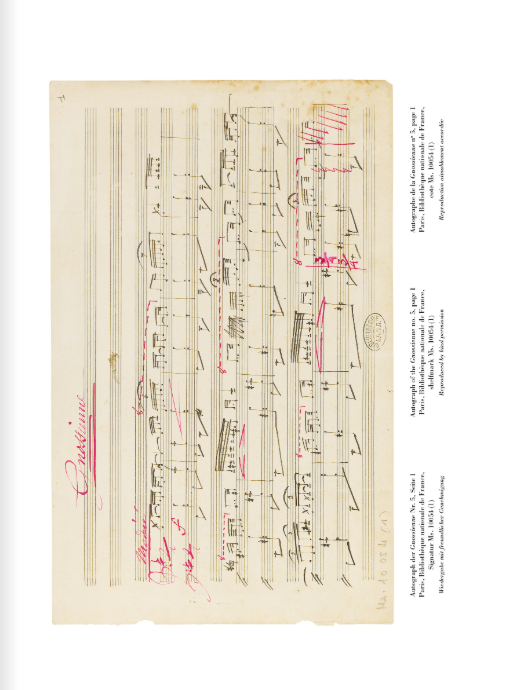 Gnossienne
Modéré
8
8
8
8
3
4
3
4
Ms. 10 054 (1)
Autograph der Gnossienne Nr. 5, Seite 1
Paris, Bibliothèque nationale de France,
Signatur Ms. 10054 (1)
Wiedergabe mit freundlicher Genehmigung
Autograph of the Gnossienne no. 5, page 1
Paris, Bibliothèque nationale de France,
shelfmark Ms. 10054 (1)
Reproduced by kind permission
Autographe de la Gnossienne nº 5, page 1
Paris, Bibliothèque nationale de France,
cote Ms. 10054 (1)
Reproduction aimablement accordée